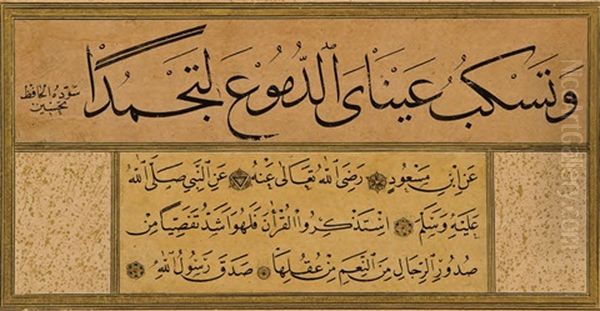 وَتَسْكُبُ عَيْنَاىَ الدُّمُوعَ لِتَجْمُدَا
سوّده الحافظ
تحسين
عَنِ ابْنِ مَسْعُودٍ رَضِىَ اللهُ تَعَالٰى عَنْهُ عَنِ النَّبِىِّ صَلَّى اللهُ
عَلَيْهِ وَسَلَّمَ اِسْتَذْكِرُوا الْقُرْاٰنَ فَلَهُوَ اَشَدُّ تَفَصِّيًا مِنْ
صُدُورِ الرِّجَالِ مِنَ النَّعَمِ مِنْ عُقُلِهَا صَدَقَ رَسُولُ اللهِ